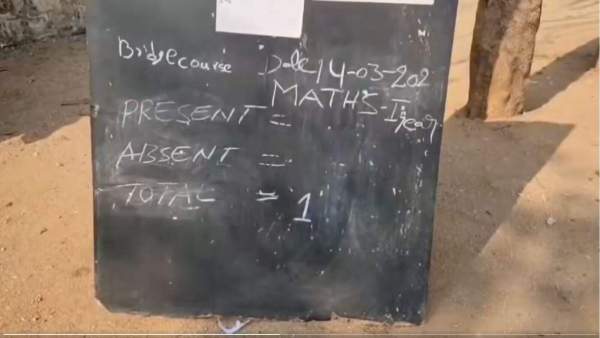 Bridge course Date 14-03-202
MATHS-II year
PRESENT =
ABSENT =
TOTAL = 1